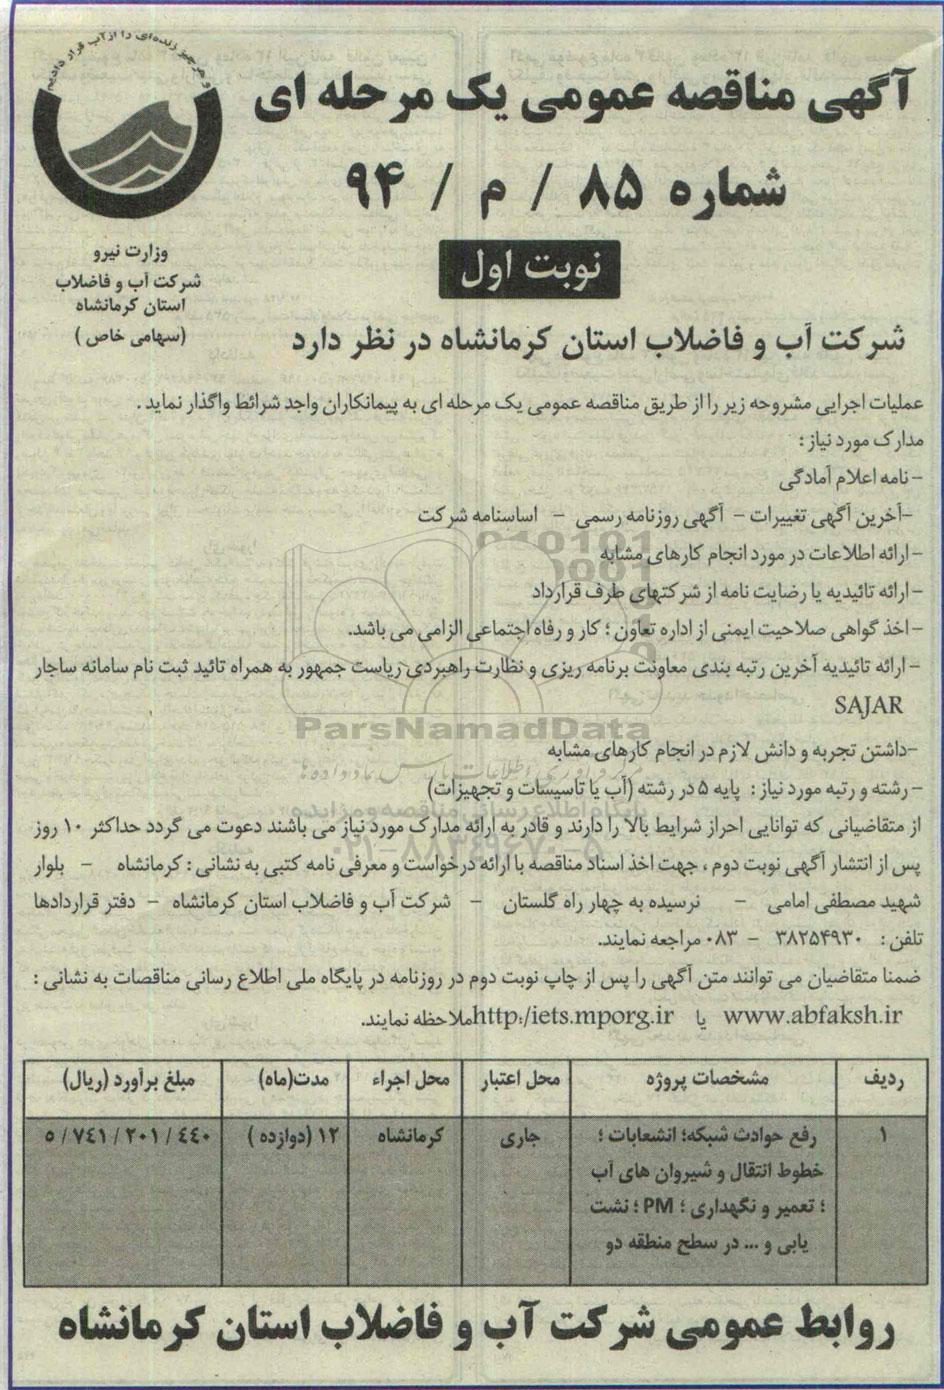 و هر چیز زنده‌ای را از آب قرار دادیم
آگهی مناقصه عمومی یک مرحله ای
شماره ۸۵ / م / ۹۴
نوبت اول
وزارت نیرو
شرکت آب و فاضلاب
استان کرمانشاه
(سهامی خاص )
شرکت آب و فاضلاب استان کرمانشاه در نظر دارد
عملیات اجرایی مشروحه زیر را از طریق مناقصه عمومی یک مرحله ای به پیمانکاران واجد شرائط واگذار نماید .
مدارک مورد نیاز :
- نامه اعلام آمادگی
-آخرین آگهی تغییرات - آگهی روزنامه رسمی - اساسنامه شرکت
- ارائه اطلاعات در مورد انجام کارهای مشابه
- ارائه تائیدیه یا رضایت نامه از شرکتهای طرف قرارداد
- اخذ گواهی صلاحیت ایمنی از اداره تعاون ؛ کار و رفاه اجتماعی الزامی می باشد.
- ارائه تائیدیه آخرین رتبه بندی معاونت برنامه ریزی و نظارت راهبردی ریاست جمهور به همراه تائید ثبت نام سامانه ساجار
SAJAR
-داشتن تجربه و دانش لازم در انجام کارهای مشابه
- رشته و رتبه مورد نیاز : پایه ۵ در رشته (آب یا تاسیسات و تجهیزات)
از متقاضیانی که توانایی احراز شرایط بالا را دارند و قادر به ارائه مدارک مورد نیاز می باشند دعوت می گردد حداکثر ۱۰ روز
پس از انتشار آگهی نوبت دوم ، جهت اخذ اسناد مناقصه با ارائه درخواست و معرفی نامه کتبی به نشانی : کرمانشاه - بلوار
شهید مصطفی امامی - نرسیده به چهار راه گلستان - شرکت آب و فاضلاب استان کرمانشاه - دفتر قراردادها
تلفن : ۳۸۲۵۴۹۳۰ - ۰۸۳ مراجعه نمایند.
ضمنا متقاضیان می توانند متن آگهی را پس از چاپ نوبت دوم در روزنامه در پایگاه ملی اطلاع رسانی مناقصات به نشانی :
www.abfaksh.ir یا http:/iets.mporg.irملاحظه نمایند.
ردیف مشخصات پروژه محل اعتبار محل اجراء مدت(ماه) مبلغ برآورد (ریال)
۱ رفع حوادث شبکه؛ انشعابات ؛ جاری کرمانشاه ۱۲ (دوازده ) ۵/۷٤۱/۲۰۱/٤٤۰
خطوط انتقال و شیروان های آب
؛ تعمیر و نگهداری ؛ PM ؛ نشت
یابی و ... در سطح منطقه دو
روابط عمومی شرکت آب و فاضلاب استان کرمانشاه
ParsNamadData
پایگاه اطلاع رسانی مناقصه و مزایده
۰۲۱-۸۸۳۴۹۶۷۰-۵